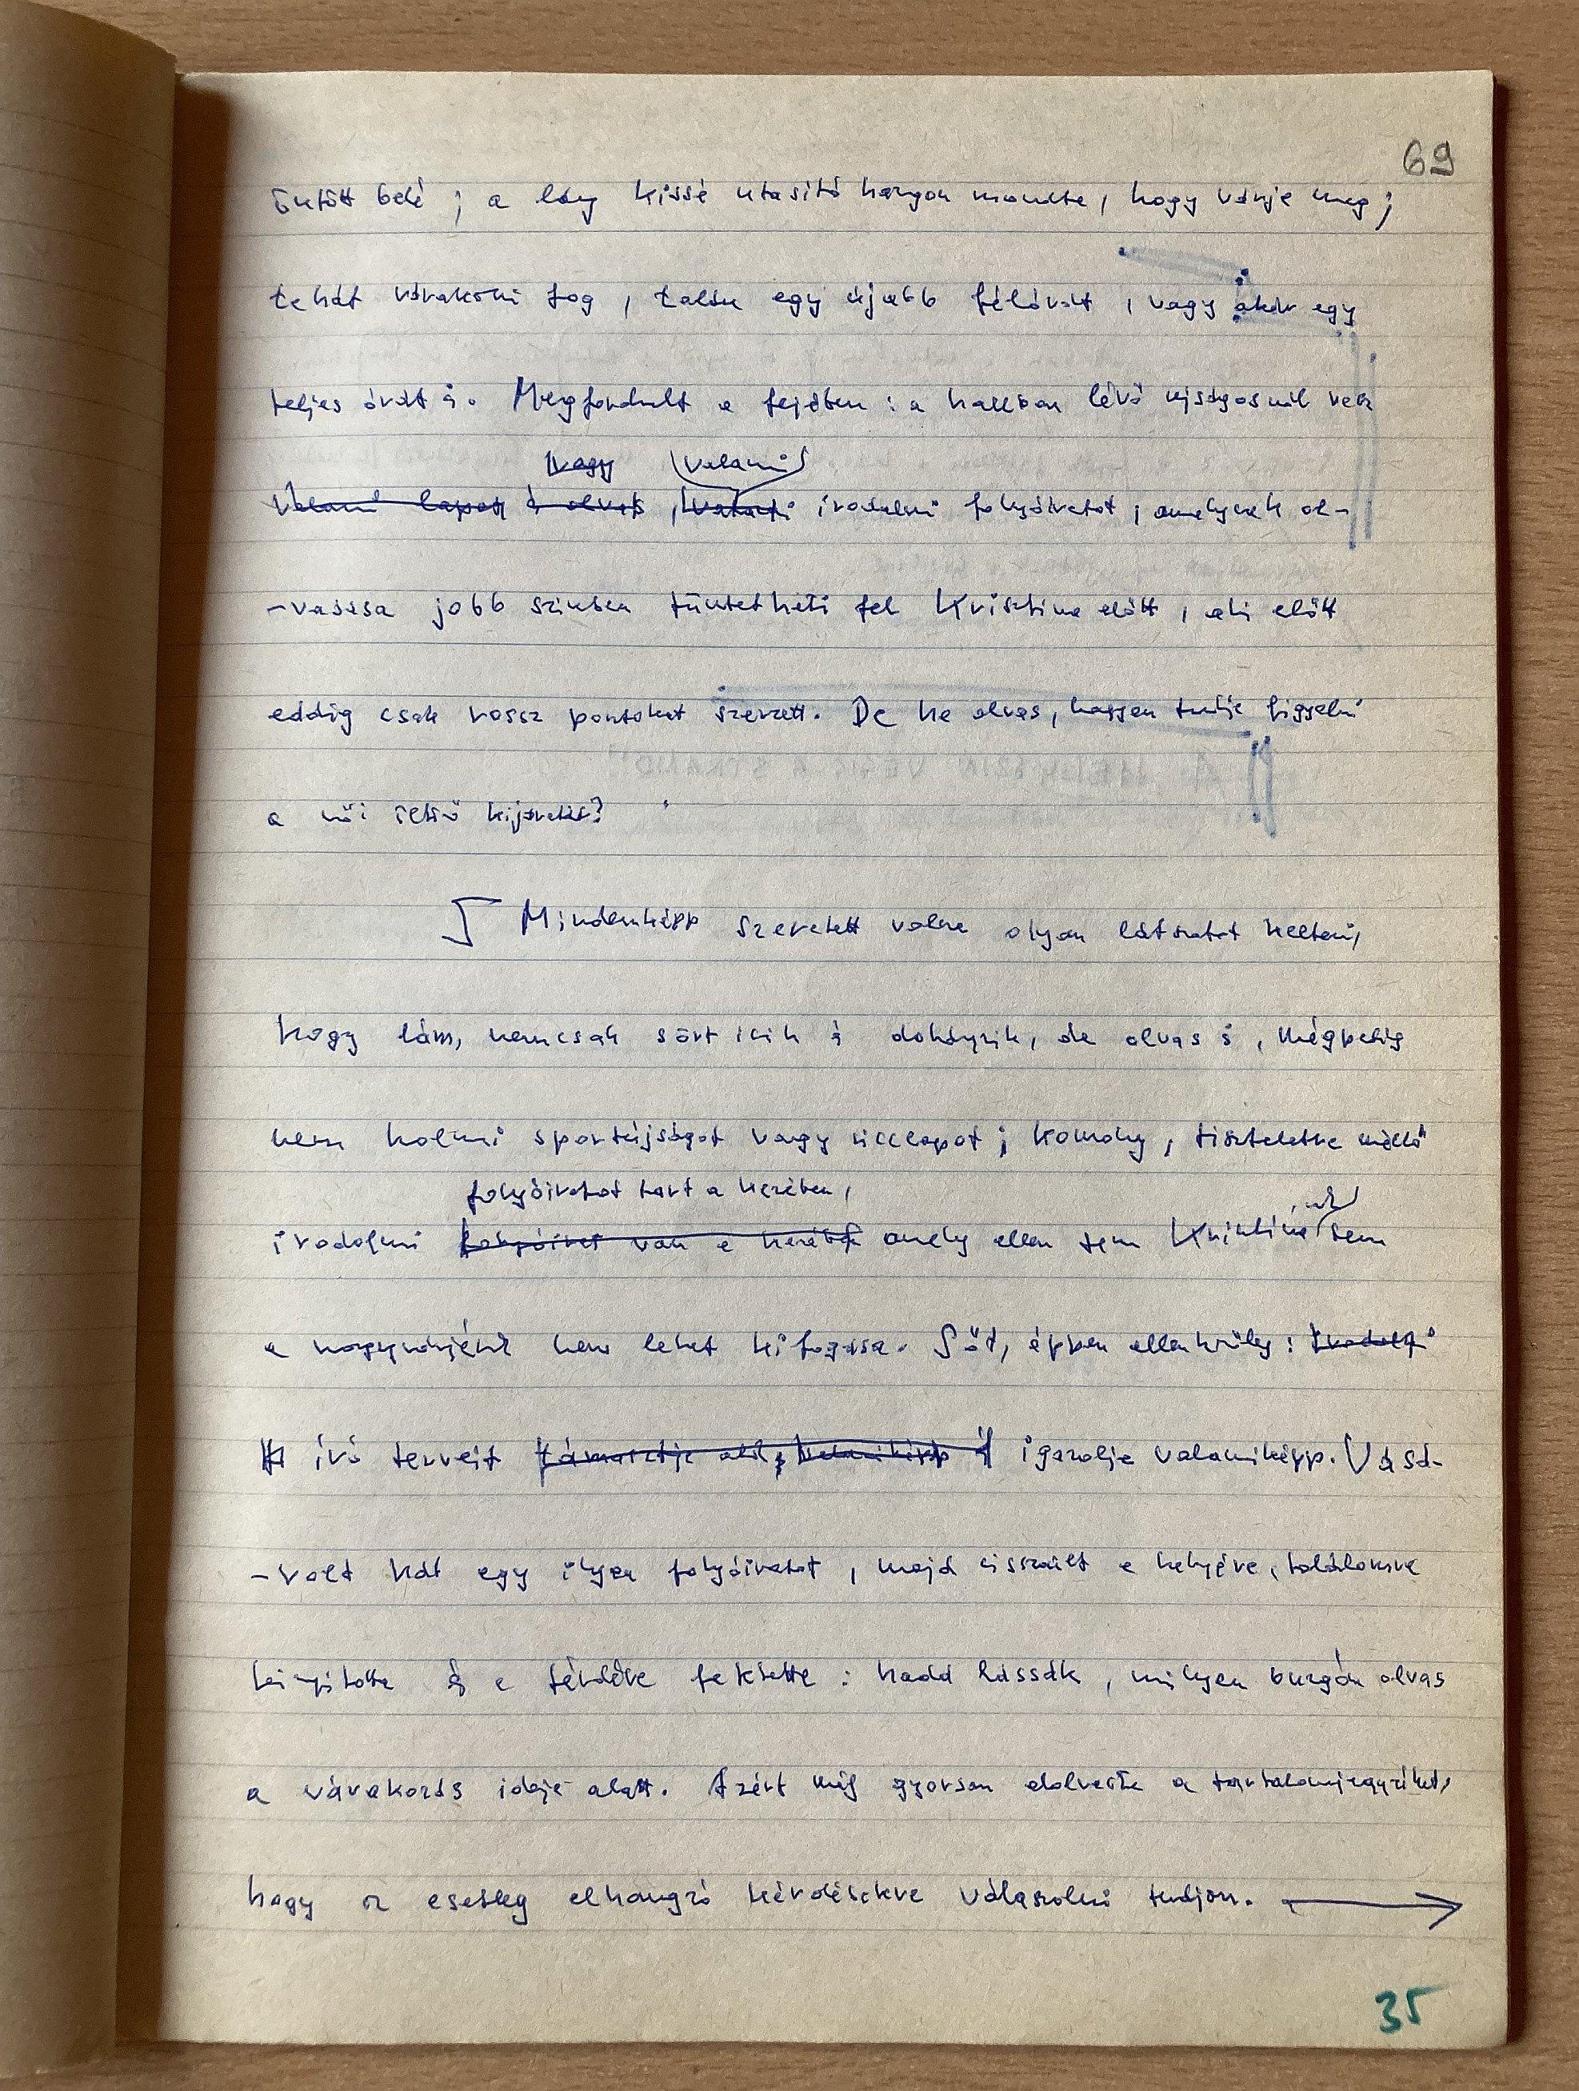 69
öntött belé; a lány kissé utasító hangon mondta, hogy várja meg;
tehát várakozni fog, talán egy újabb félórát, vagy akár egy
teljes órát is. Megfordult a fejében: a hallban lévő ujságosnál vesz
vagy valami
valami lapot és olvas, valami irodalmi folyóiratot, amelynek ol-
-vasása jobb szinben tüntetheti fel Krisztina előtt, aki előtt
eddig csak rossz pontokat szerzett. De ha olvas, hogyan tudja figyelni
a női öltöző kijáratát?
Mindenképp szeretett volna olyan látszatot kelteni,
hogy lám, nemcsak sört iszik és dohányzik, de olvas is, mégpedig
nem holmi sportújságot vagy vicclapot; komoly, tiszteletre méltó
folyóiratot tart a kezében,
irodalmi folyóirat van a kezében amely ellen sem Krisztinának sem
a nagynénjének nem lehet kifogása. Sőt, éppen ellenkezőleg: irodalmi
író terveit támasztja alá, valamiképp igazolja valamiképp. Vásá-
-rolt hát egy ilyen folyóiratot, majd visszaült a helyére, találomra
kinyitotta és a térdére fektette: hadd lássák, milyen buzgón olvas
a várakozás ideje alatt. Azért még gyorsan elolvasta a tartalomjegyzéket,
hogy az esetleg elhangzó kérdésekre válaszolni tudjon.
35